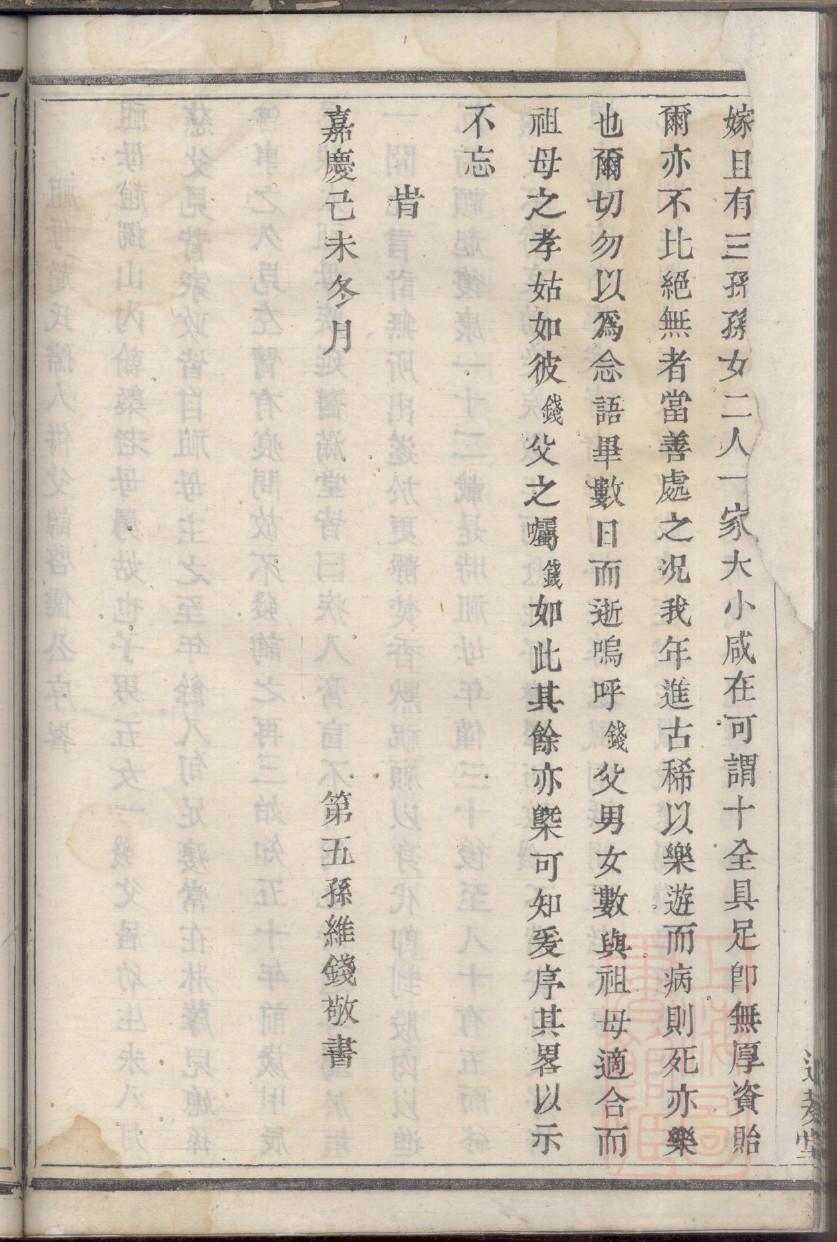 嫁且有三孫孫女二人一家大小咸在可謂十全具足卽無厚資貽
爾亦不比絕無者當善處之况我年進古稀以樂遊而病則死亦樂
也爾切勿以爲念語畢數日而逝嗚呼錢父男女數與祖母適合而
祖母之孝姑如彼錢父之囑錢如此其餘亦槩可知爰序其畧以示
不忘
旹
嘉慶己未冬月　第五孫維錢敬書